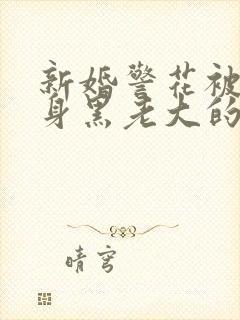 新婚警花被
身黑老大的
晴穹